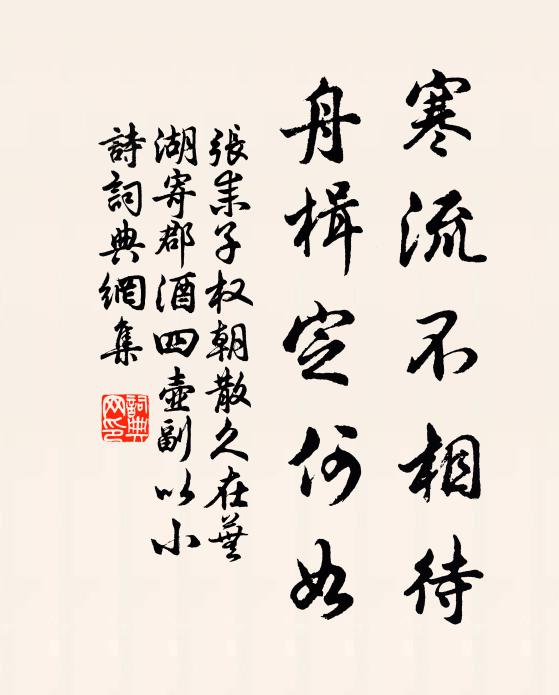 寒流不相待
舟楫定何如
張耒子权朝散久在蕪
湖寄郡酒四壺副以小
詩詞典網集
詞典網印